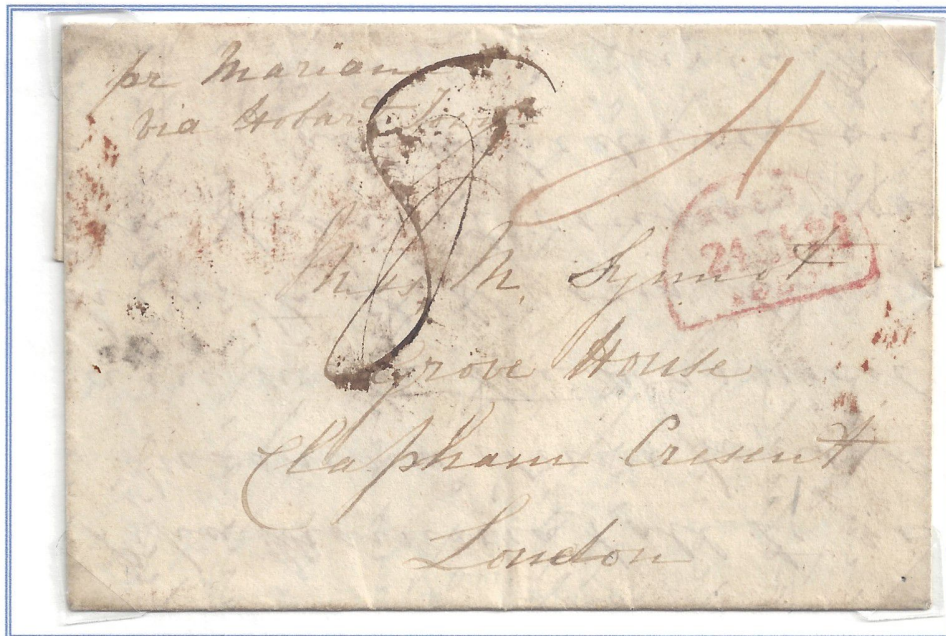 pr Marian
via Hobart Town
8
4
Miss M. Synnot
Grove House
Clapham Cresent
London